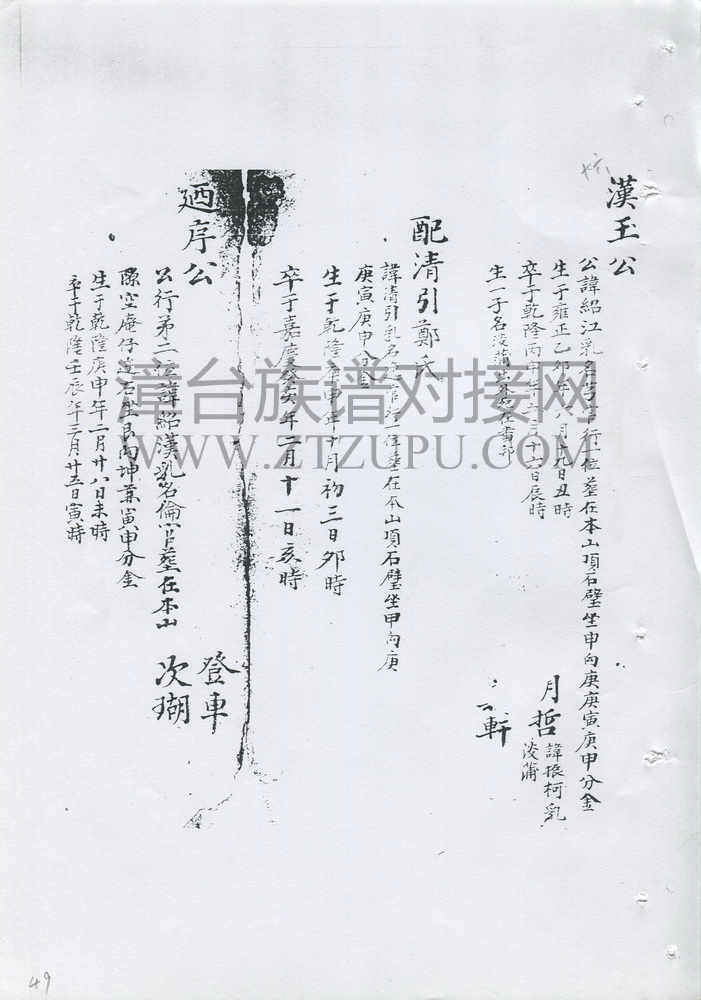 漢玉公
公諱紹江乳名
行一位墓在本山頂石壁坐申向庚庚寅庚申分金
生于雍正乙卯年八月十九日丑時
卒于乾隆丙
月十六日辰時
生一子名淡蒲
月哲
諱振柯乳
淡蒲
軒
配清引鄭氏
諱清引乳名
行一位墓在本山頂石壁坐甲向庚
庚寅庚申分金
生于乾隆庚申年十月初三日夘時
卒于嘉慶癸亥年二月十一日亥時
迺序公
公行第二位諱紹漢乳名倫官墓在本山
隙空庵仔邊石坐艮向坤兼寅申分金
生于乾隆庚申年二月廿八日未時
卒于乾隆壬辰年三月廿五日寅時
登車
次瑚
漳台族谱对接网
WWW.ZTZUPU.COM
49